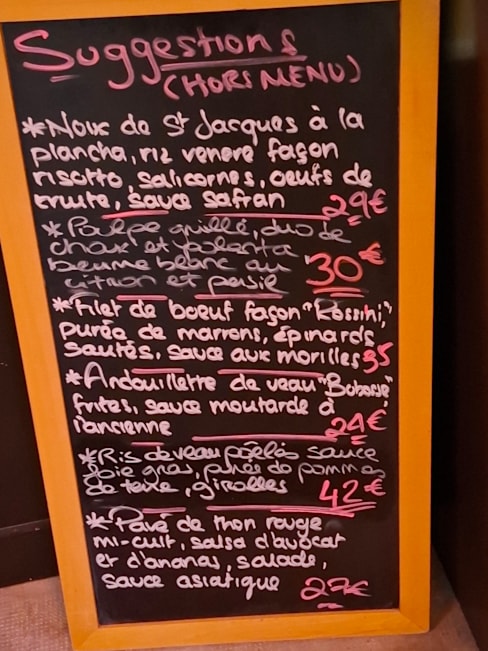 Suggestions
(HORS MENU)
*Noix de St Jacques à la
plancha, riz venere façon
risotto, salicornes, oeufs de
truite, sauce safran 29€
*Poulpe grillé, duo de
choux et polenta
beurre blanc au 30€
citron et persil
*Filet de boeuf façon "Rossini,"
purée de marrons, épinards
sautés, sauce aux morilles 35
*Andouillette de veau "Bobosse"
frites, sauce moutarde à
l'ancienne 24€
*Ris de veau poêlés sauce
foie gras, purée de pommes
de terre, girolles 42€
*Pavé de thon rouge
mi-cuit, salsa d'avocat
et d'ananas, salade,
sauce asiatique 27€